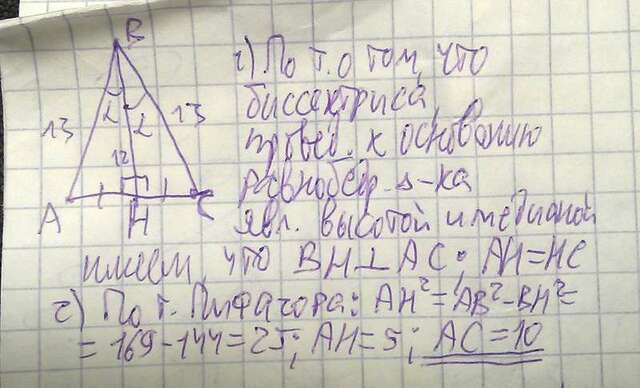 B
α
α
13
13
12
A
H
C
1) По т. о том, что
биссектриса,
провед. к основанию
равнобедр. Δ-ка
явл. высотой и медианой
имеем, что BH⊥AC, AH=HC
2) По т. Пифагора: AH²=AB²-BH²=
=169-144=25; AH=5; AC=10